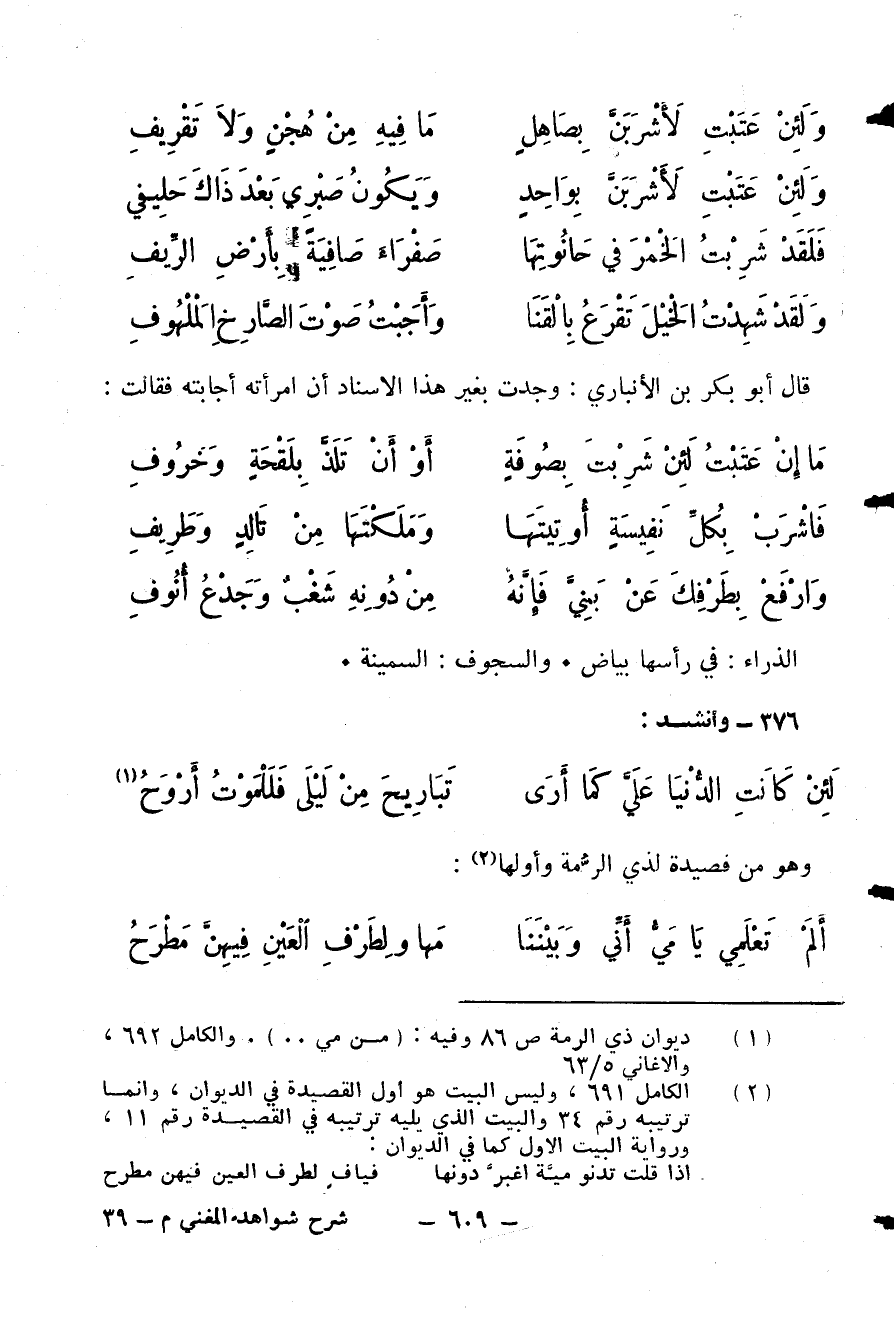 وَلَئِنْ عَتَبْتِ لَأَشْرَبَنَّ بِصَاهِلٍ مَا فِيهِ مِنْ هُجْنٍ وَلاَ تَقْرِيفِ
وَلَئِنْ عَتَبْتِ لَأَشْرَبَنَّ بِوَاحِدٍ وَيَكُونُ صَبْرِي بَعْدَ ذَاكَ حَلِيفِي
فَلَقَدْ شَرِبْتُ الْخَمْرَ فِي حَانُوتِهَا صَفْرَاءَ صَافِيَةً بِأَرْضِ الرِّيفِ
وَلَقَدْ شَهِدْتُ الْخَيْلَ تَقْرَعُ بِالْقَنَا وَأَجَبْتُ صَوْتَ الصَّارِخِ الْمَلْهُوفِ
قال أبو بكر بن الأنباري : وجدت بغير هذا الاسناد أن امرأته أجابته فقالت :
مَا إِنْ عَتَبْتُ لَئِنْ شَرِبْتَ بِصُوفَةٍ أَوْ أَنْ تَلَذَّ بِلَقْحَةٍ وَخَرُوفِ
فَاشْرَبْ بِكُلِّ نَفِيسَةٍ أُوتِيتَهَا وَمَلَكْتَهَا مِنْ تَالِدٍ وَطَرِيفِ
وَارْفَعْ بِطَرْفِكَ عَنْ بَنِيَّ فَإِنَّهُ مِنْ دُونِهِ شَغْبٌ وَجَدْعُ أُنُوفِ
الذراء : في رأسها بياض . والسجوف : السمينة .
٣٧٦ – وأنشد :
لَئِنْ كَانَتِ الدُّنْيَا عَلَيَّ كَمَا أَرَى تَبَارِيحَ مِنْ لَيْلَى فَلَلْمَوْتُ أَرْوَحُ(١)
وهو من قصيدة لذي الرمة وأولها(٢) :
أَلَمْ تَعْلَمِي يَا مَيُّ أَنِّي وَبَيْنَنَا مَها ولِطَرْفِ الْعَيْنِ فِيهِنَّ مَطْرَحُ
(١) ديوان ذي الرمة ص ٨٦ وفيه : ( من مي .. ) . والكامل ٦٩٢ ،
والاغاني ٦٣/٥
(٢) الكامل ٦٩١ ، وليس البيت هو أول القصيدة في الديوان ، وانما
ترتيبه رقم ٣٤ والبيت الذي يليه ترتيبه في القصيدة رقم ١١ ،
ورواية البيت الاول كما في الديوان :
اذا قلت تدنو ميّة اغبرّ دونها فيافٍ لطرف العين فيهن مطرح
– ٦٠٩ – شرح شواهد المغني م – ٣٩